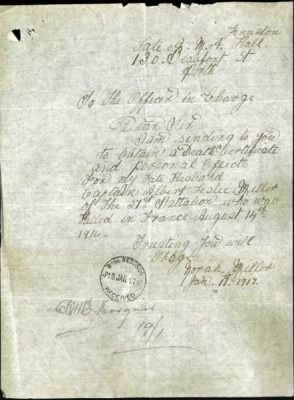 Late of M. A. Hall.
130. Beaufort St
Perth
To The Officer in Charge
Dear Sir
I am sending to you
to obtain a Death Certificate
and Personal Effects
For my late Husband
Captain Albert Leslie Miller
of The Battalion who was
Killed in France August 14th
1916.
Trusting You will
Oblige
Norah Miller
Jan. 17. 1917.
BASE RECORDS
19 JAN 17
RECEIVED
19/1